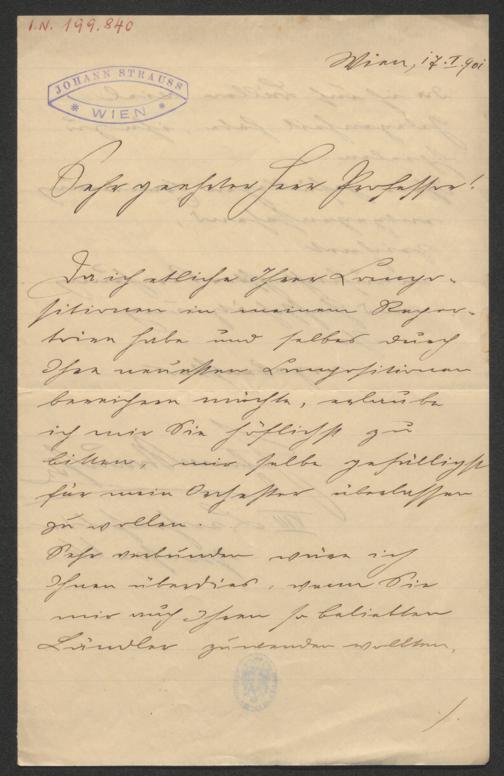 I.N. 199.840
JOHANN STRAUSS
* WIEN *
Wien, 17.I.901
Sehr geehrter Herr Professor!
Da ich etliche Ihrer Compo-
sitionen in meinem Reper-
toire habe und selbes durch
Ihre neuesten Compositionen
bereichern möchte, erlaube
ich mir Sie höflichst zu
bitten, mir selbe gefälligst
für mein Orchester überlassen
zu wollen.
Sehr verbunden wäre ich
Ihnen überdies, wenn Sie
mir auch Ihren so beliebten
Ländler zuwenden wollten,
./.